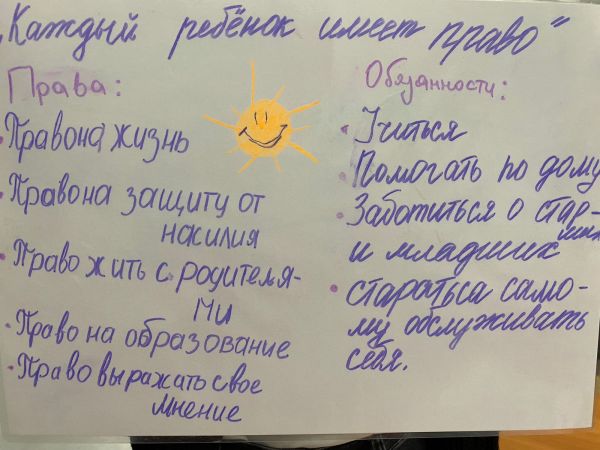 „Каждый ребёнок имеет право"
Права:
• Правона жизнь
• Правона защиту от
насилия
• Право жить с родителя-
ми
• Право на образование
• Право выражать свое
мнение
Обязанности:
• Учиться
• Помогать по дому
• Заботиться о стар-
ших
и младших
• стараться само-
му обслуживать
себя.